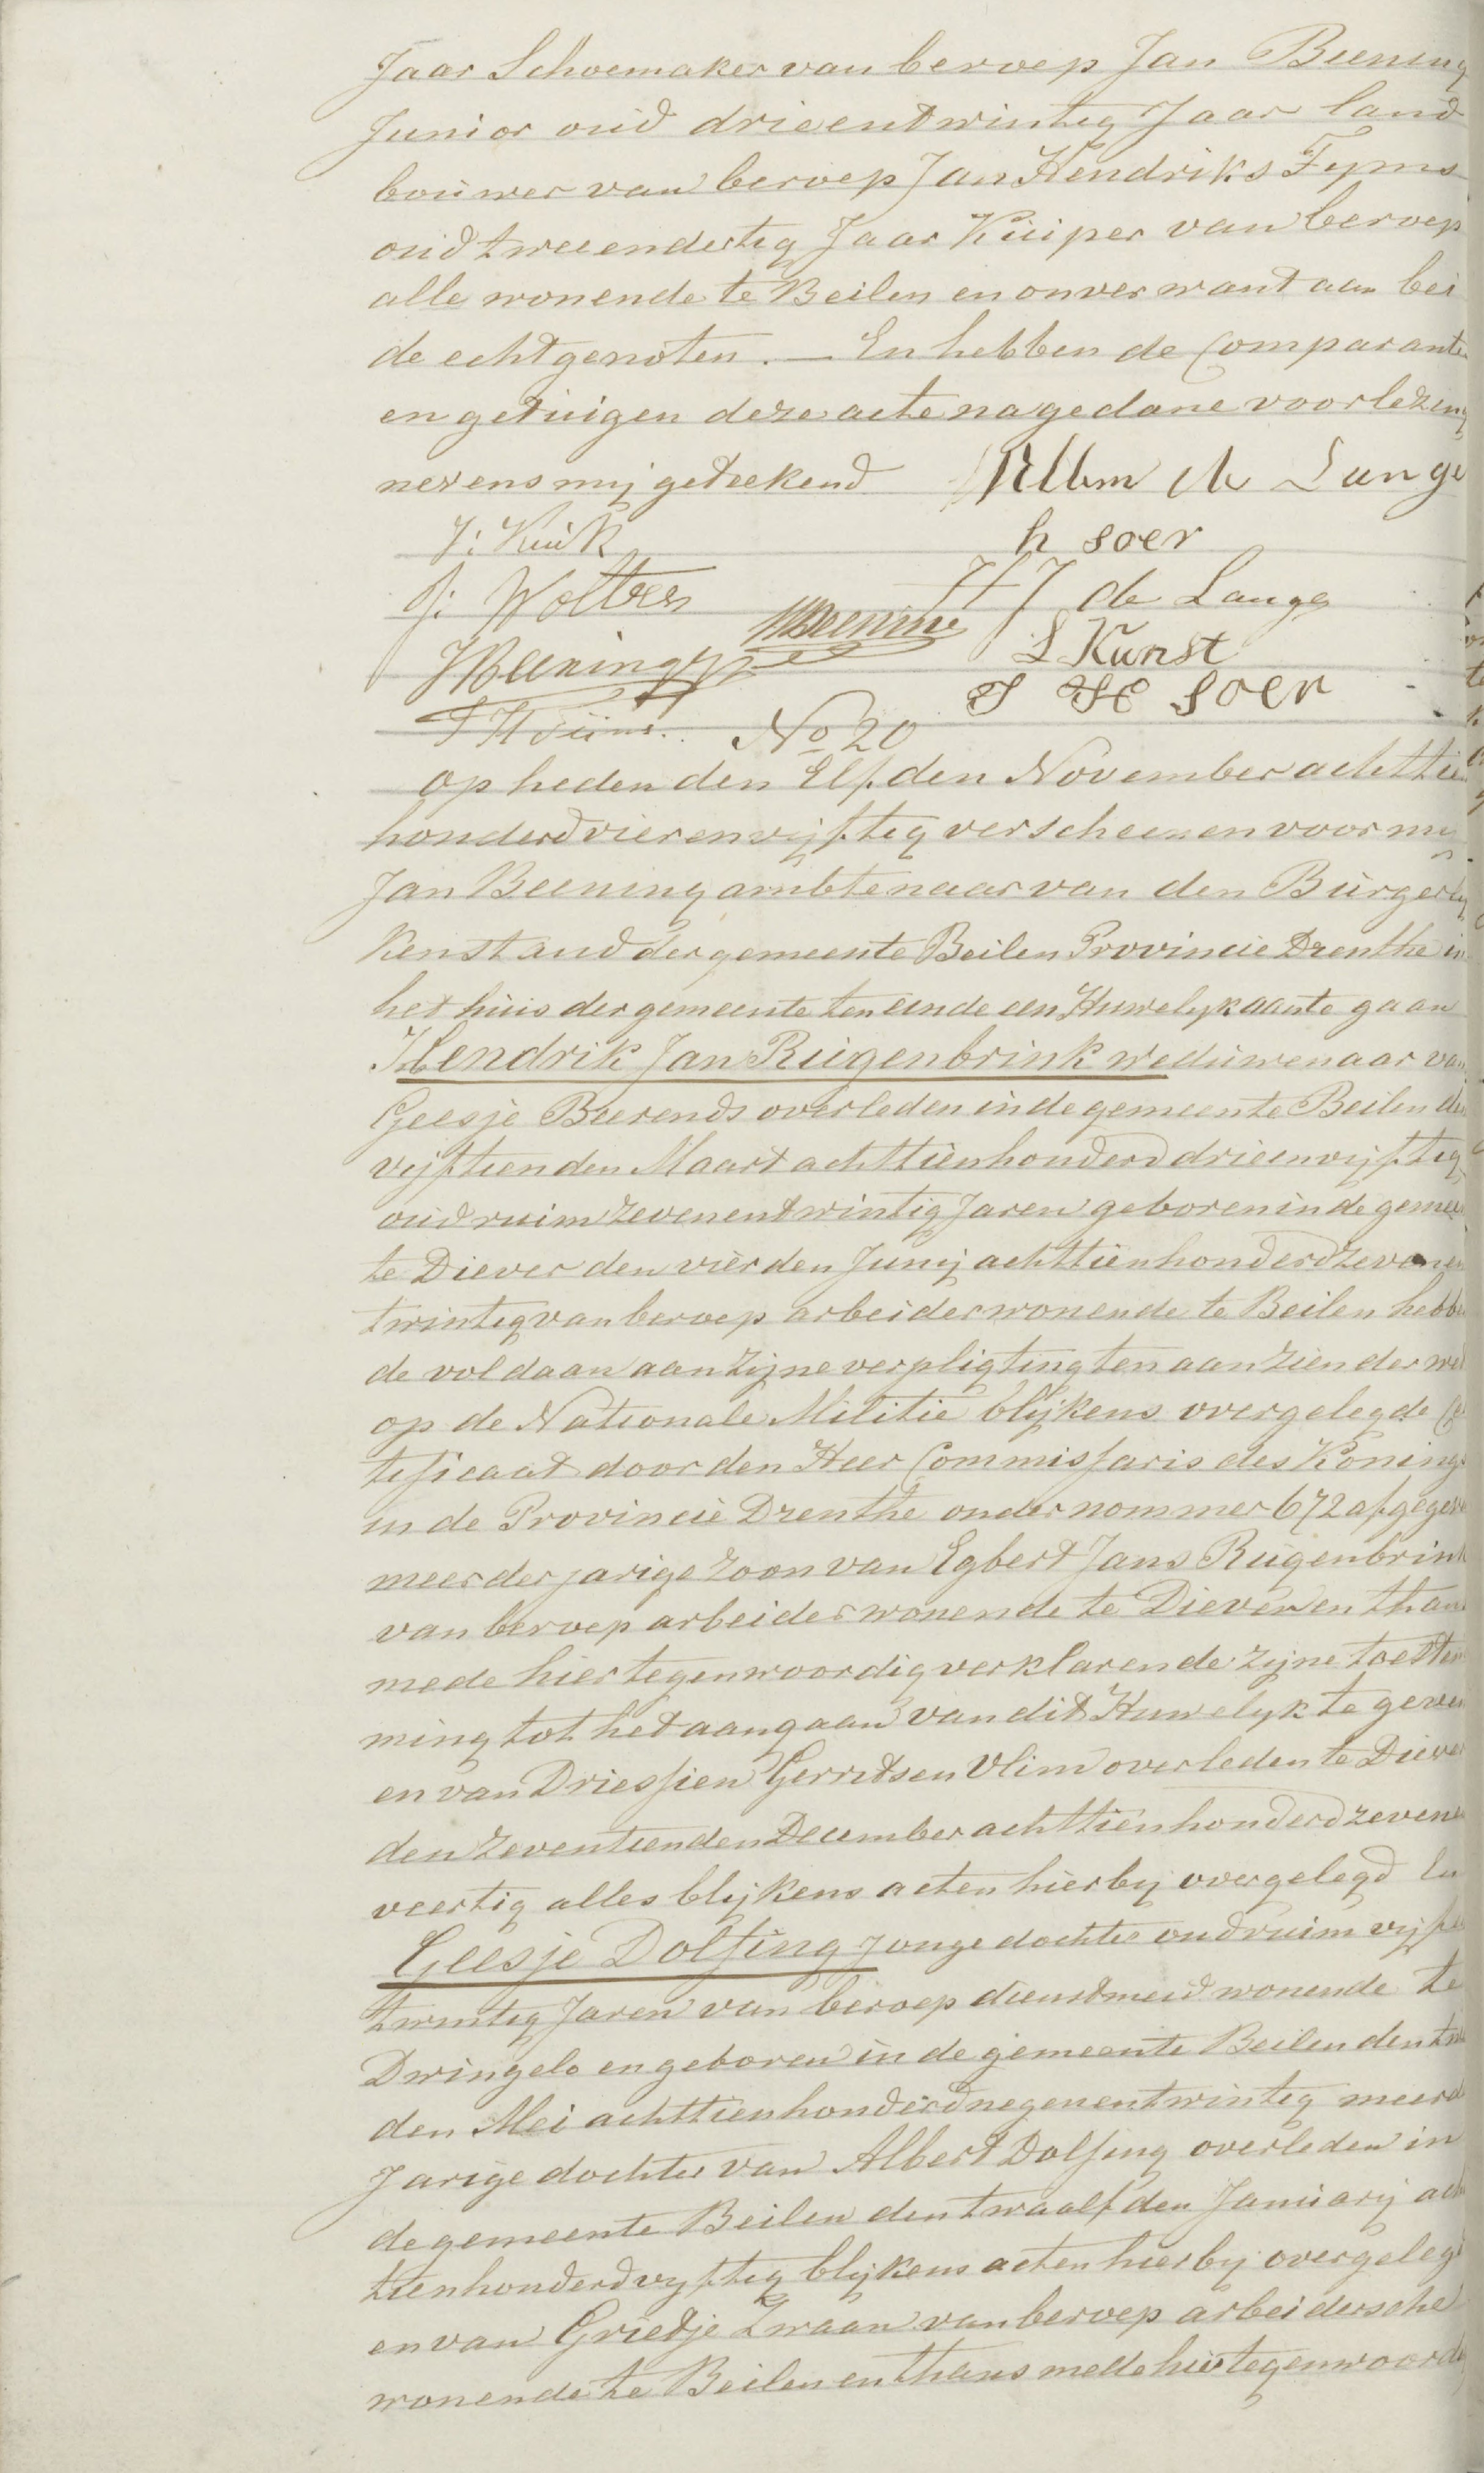 Jaar Schoemaker van beroep Jan Beening
Junior oud drieentwintig Jaar land
bouwer van beroep Jan Hendriks Tyms
oud tweeendertig Jaar Kuiper van beroep
alle wonende te Beilen en onverwant aan bei
de echtgenoten. — En hebben de Comparante
en getuigen deze acte na gedane voorlezing
nevens mij geteekend Willem de Lange
J: Kuik h soer
J: Wolters H J de Lange
JBeening L Kunst
J H soer
No 20
op heden den Elfden November achttien
honderd vierenvijftig verscheenen voor mij
Jan Beening ambtenaar van den Burgerly
kenstand der gemeente Beilen Provincie Drenthe in
het huis der gemeente ten einde een Huwelyk aan te gaan
Hendrik Jan Rugenbrink weduwenaar van
Geesje Beerends overleden in de gemeente Beilen den
vijftienden Maart achttienhonderd drieenvijftig
oud ruim zevenentwintig Jaren geboren in de gemeen
te Diever den vierden Junij achttienhonderd zevenen
twintig van beroep arbeider wonende te Beilen hebben
de voldaan aan zijne verpligting ten aanzien der wet
op de Nationale Militie blijkens overgelegde Ce
tificaat door den Heer Commissaris des Konings
in de Provincie Drenthe onder nommer 672 afgegeven
meerderjarige zoon van Egbert Jans Rugenbrink
van beroep arbeider wonende te Diever en thans
mede hier tegenwoordig verklarende zijne toestem
ming tot het aangaan van dit Huwelyk te geven
en van Driessien Gerritsen Vlim overleden te Diever
den zeventienden December achttienhonderd zevenen
veertig alles blijkens acten hierby overgelegd En
Geesje Dolfing Jonge dochter oud ruim vijfen
twintig Jaren van beroep dienstmeid wonende te
Dwingelo en geboren in de gemeente Beilen den
den Mei achttienhonderd negenentwintig meerder
Jarige dochter van Albert Dolfing overleden in
de gemeente Beilen den twaalfden January ach
tienhonderd vyftig blijkens acten hierby overgelegd
en van Grietje Zwaan van beroep arbeidersche
wonende te Beilen en thans mede hier tegenwoordig